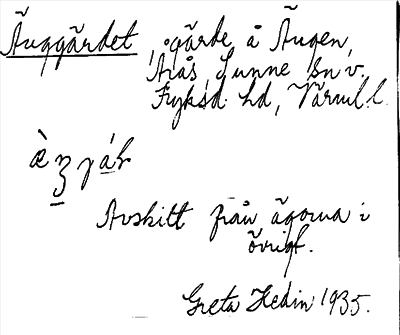 Änggärdet, gärde å Ängen,
Arås, Sunne sn v.
Fryksd. hd, Värml. l.
Avskilt från ägorna i
övrigt.
Greta Hedin 1935.